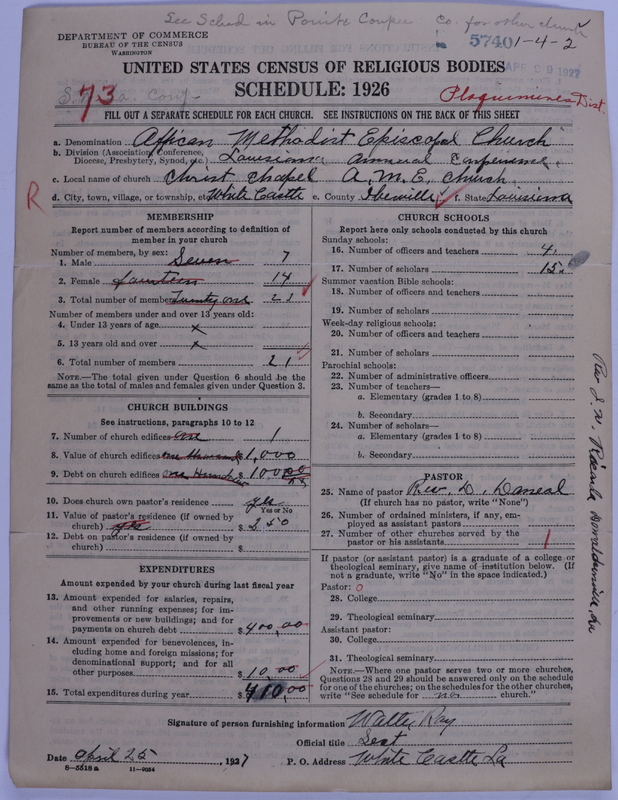 See Sched in Pointe Coupee Co. for other church
DEPARTMENT OF COMMERCE
BUREAU OF THE CENSUS
WASHINGTON
5740 1-4-2
APR 29 1927
UNITED STATES CENSUS OF RELIGIOUS BODIES
SCHEDULE: 1926
73
Plaquimines Dist.
FILL OUT A SEPARATE SCHEDULE FOR EACH CHURCH. SEE INSTRUCTIONS ON THE BACK OF THIS SHEET
a. Denomination African Methodist Episcopal Church
b. Division (Association, Conference, Diocese, Presbytery, Synod, etc.) Louisiana Annual Conference
c. Local name of church Christ Chapel A. M. E. Church
d. City, town, village, or township, etc. White Castle e. County Iberville f. State Louisiana
R
MEMBERSHIP
Report number of members according to definition of
member in your church
Number of members, by sex:
1. Male Seven 7
2. Female fourteen 14
3. Total number of members Twenty one 21
Number of members under and over 13 years old:
4. Under 13 years of age x
5. 13 years old and over x
6. Total number of members 21
NOTE.—The total given under Question 6 should be the
same as the total of males and females given under Question 3.
CHURCH BUILDINGS
See instructions, paragraphs 10 to 12
7. Number of church edifices one 1
8. Value of church edifices one thousand $1,000
9. Debt on church edifices one Hundred $100 00
10. Does church own pastor's residence yes
Yes or No
11. Value of pastor's residence (if owned by
church) yes $250
12. Debt on pastor's residence (if owned by
church) $
EXPENDITURES
Amount expended by your church during last fiscal year
13. Amount expended for salaries, repairs,
and other running expenses; for im-
provements or new buildings; and for
payments on church debt $400,00
14. Amount expended for benevolences, in-
cluding home and foreign missions; for
denominational support; and for all
other purposes $10,00
15. Total expenditures during year $410,00
CHURCH SCHOOLS
Report here only schools conducted by this church
Sunday schools:
16. Number of officers and teachers 4
17. Number of scholars 15
Summer vacation Bible schools:
18. Number of officers and teachers
19. Number of scholars
Week-day religious schools:
20. Number of officers and teachers
21. Number of scholars
Parochial schools:
22. Number of administrative officers
23. Number of teachers—
a. Elementary (grades 1 to 8)
b. Secondary
24. Number of scholars—
a. Elementary (grades 1 to 8)
b. Secondary
PASTOR
25. Name of pastor Rev. D. Daneal
(If church has no pastor, write "None")
26. Number of ordained ministers, if any, em-
ployed as assistant pastors
27. Number of other churches served by the
pastor or his assistants 1
If pastor (or assistant pastor) is a graduate of a college or
theological seminary, give name of institution below. (If
not a graduate, write "No" in the space indicated.)
Pastor: 0
28. College
29. Theological seminary
Assistant pastor:
30. College
31. Theological seminary
NOTE.—Where one pastor serves two or more churches,
Questions 28 and 29 should be answered only on the schedule
for one of the churches; on the schedules for the other churches,
write "See schedule for no church."
Signature of person furnishing information Walter Ray
Official title Sect
Date April 25, 1927 P. O. Address White Castle La
8-5518a 11-9054
Rev J. W. Donaldsonville, La